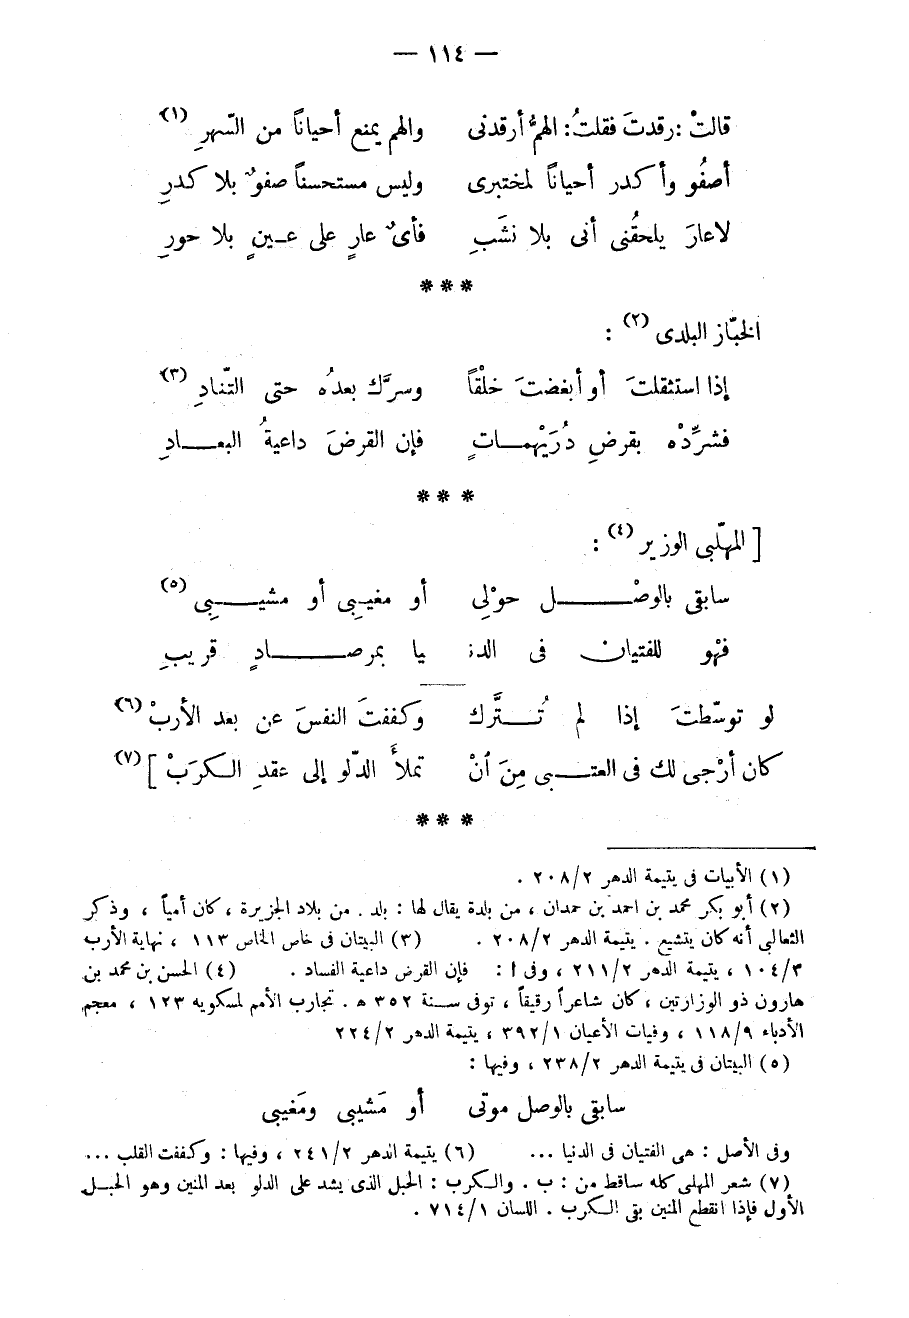 — ١١٤ —
قالتْ : رقدتَ فقلتُ : الهمُّ أرقدنى والهم يمنع أحياناً من السّهرِ (١)
أصفُو وأكدر أحياناً لمختبرى وليس مستحسناً صفوٌ بلا كدرِ
لاعارَ يلحقُنى أنى بلا نشَبٍ فأىُّ عارٍ على عـينٍ بلا حورِ
* * *
الخبّاز البلدى (٢) :
إذا استثقلتَ أو أبغضتَ خلْقاً وسرَّك بعدُه حتى التّنادِ (٣)
فشرِّدْه بقرضِ دُرَيْهمـاتٍ فإن القرضَ داعيةُ البعـادِ
* * *
[ المهلّبى الوزير (٤) :
سابقى بالوصْـل حوْلِى أو مغيبِى أو مشيـبِى (٥)
فهْو للفتيان فى الدنـ ـيا بمرصـادٍ قريبِ
لو توسّطتَ إذا لم تُـتَّرك وكففتَ النفسَ عن بعد الأربْ (٦)
كان أرْجى لك فى العتـبى مِنَ اُنْ تملأَ الدّلو إلى عقدِ الـكربْ ] (٧)
* * *
(١) الأبيات فى يتيمة الدهر ٢٠٨/٢ .
(٢) أبو بكر محمد بن احمد بن حمدان ، من بلدة يقال لها : بلد . من بلاد الجزيرة ، كان أمياً ، وذكر
الثعالبى أنه كان يتشيع . يتيمة الدهر ٢٠٨/٢ . (٣) البيتان فى خاص الخاص ١١٣ ، نهاية الأرب
١٠٤/٣ ، يتيمة الدهر ٢١١/٢ ، وفى ا : فإن القرض داعية الفساد . (٤) الحسن بن محمد بن
هارون ذو الوزارتين ، كان شاعراً رقيقاً ، توفى سـنة ٣٥٢ ه . تجارب الأمم لمسكويه ١٢٣ ، معجم
الأدباء ١١٨/٩ ، وفيات الأعيان ٣٩٢/١ ، يتيمة الدهر ٢٢٤/٢
(٥) البيتان فى يتيمة الدهر ٢٣٨/٢ ، وفيها :
سابقى بالوصل موتى أو مَشيبى ومَغيبى
وفى الأصل : هى الفتيان فى الدنيا ... (٦) يتيمة الدهر ٢٤١/٢ ، وفيها : وكففت القلب ...
(٧) شعر المهلبى كله ساقط من : ب . والـكرب : الحبل الذى يشد على الدلو بعد المنين وهو الحبـل
الأول فإذا انقطع المنين بقى الـكرب . اللسان ٧١٤/١ .